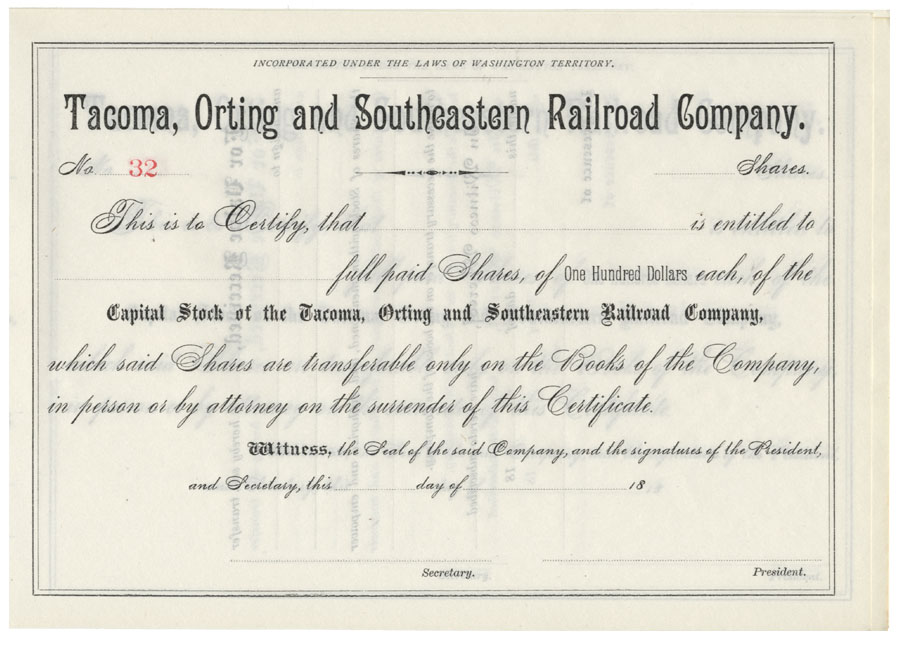 INCORPORATED UNDER THE LAWS OF WASHINGTON TERRITORY.
Tacoma, Orting and Southeastern Railroad Company.
No. 32 Shares.
This is to Certify, that is entitled to
full paid Shares, of One Hundred Dollars each, of the
Capital Stock of the Tacoma, Orting and Southeastern Railroad Company,
which said Shares are transferable only on the Books of the Company,
in person or by attorney on the surrender of this Certificate.
Witness, the Seal of the said Company, and the signatures of the President,
and Secretary, this day of 18
Secretary. President.